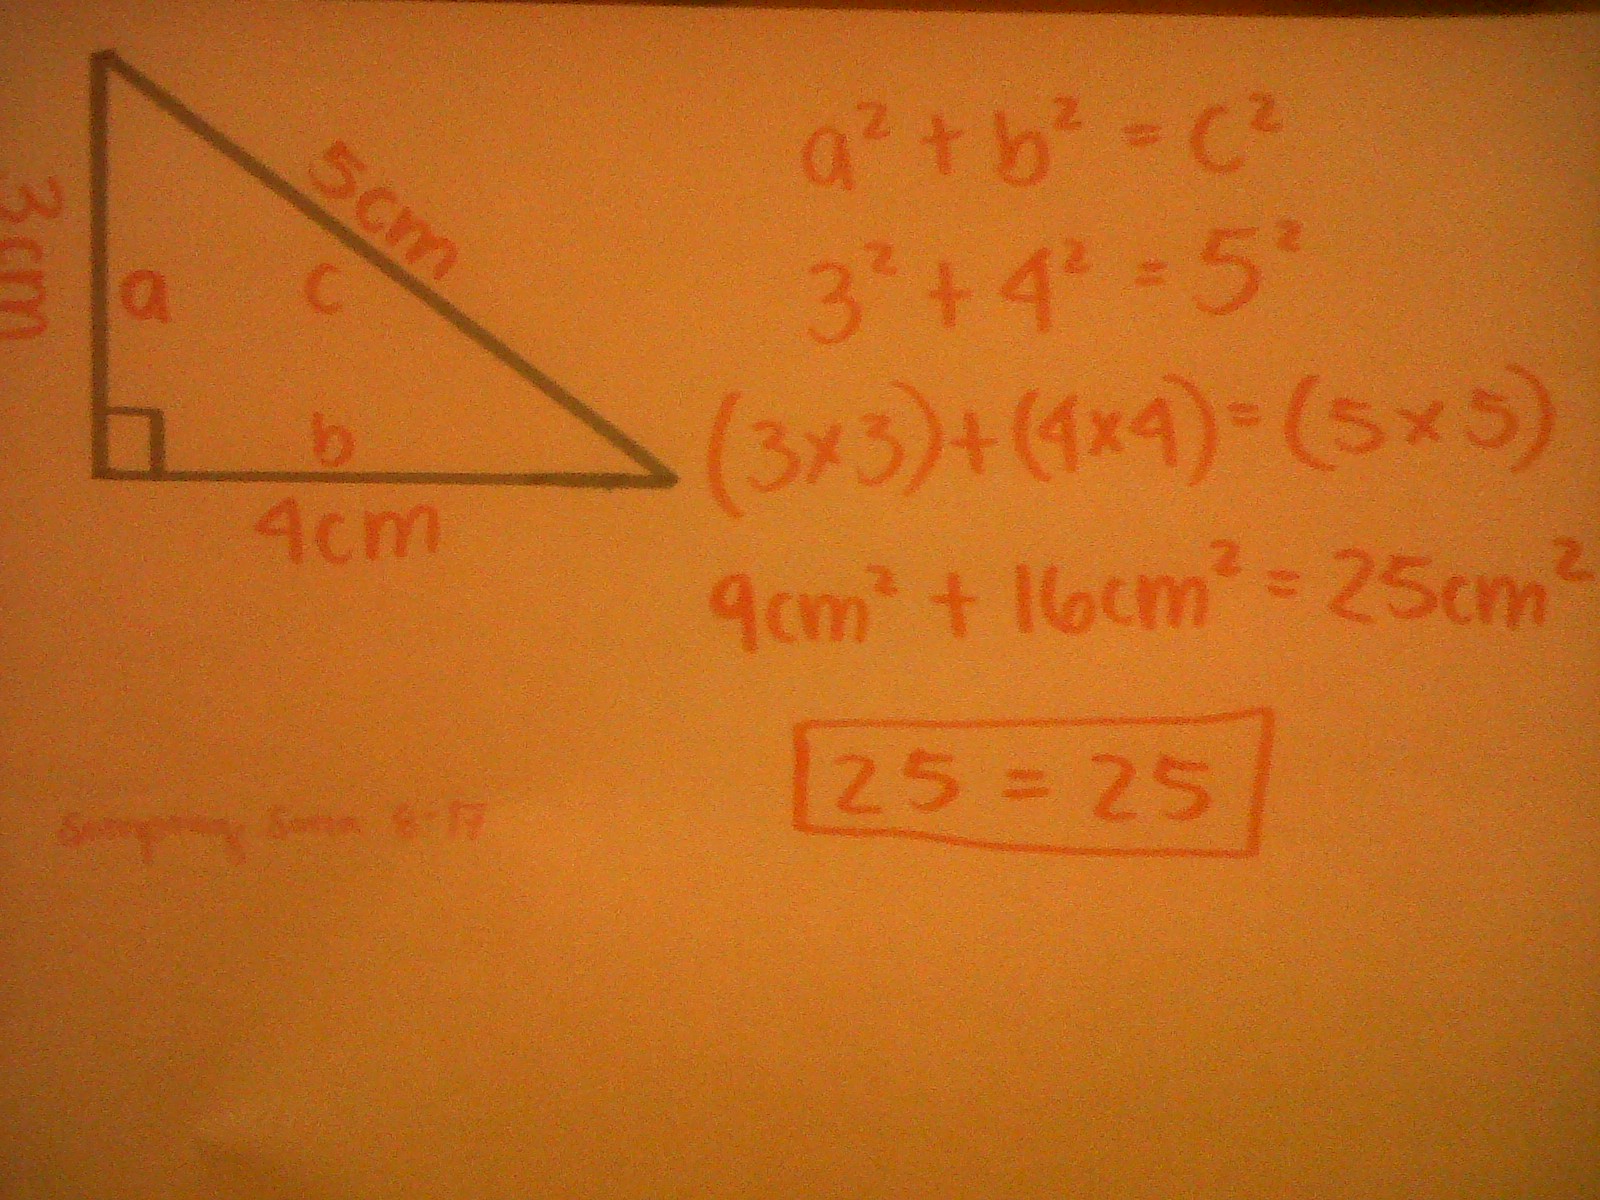 3cm
a
5cm
c
b
4cm
a² + b² = c²
3² + 4² = 5²
(3×3)+(4×4)=(5×5)
9cm² + 16cm² = 25cm²
25 = 25
8-17